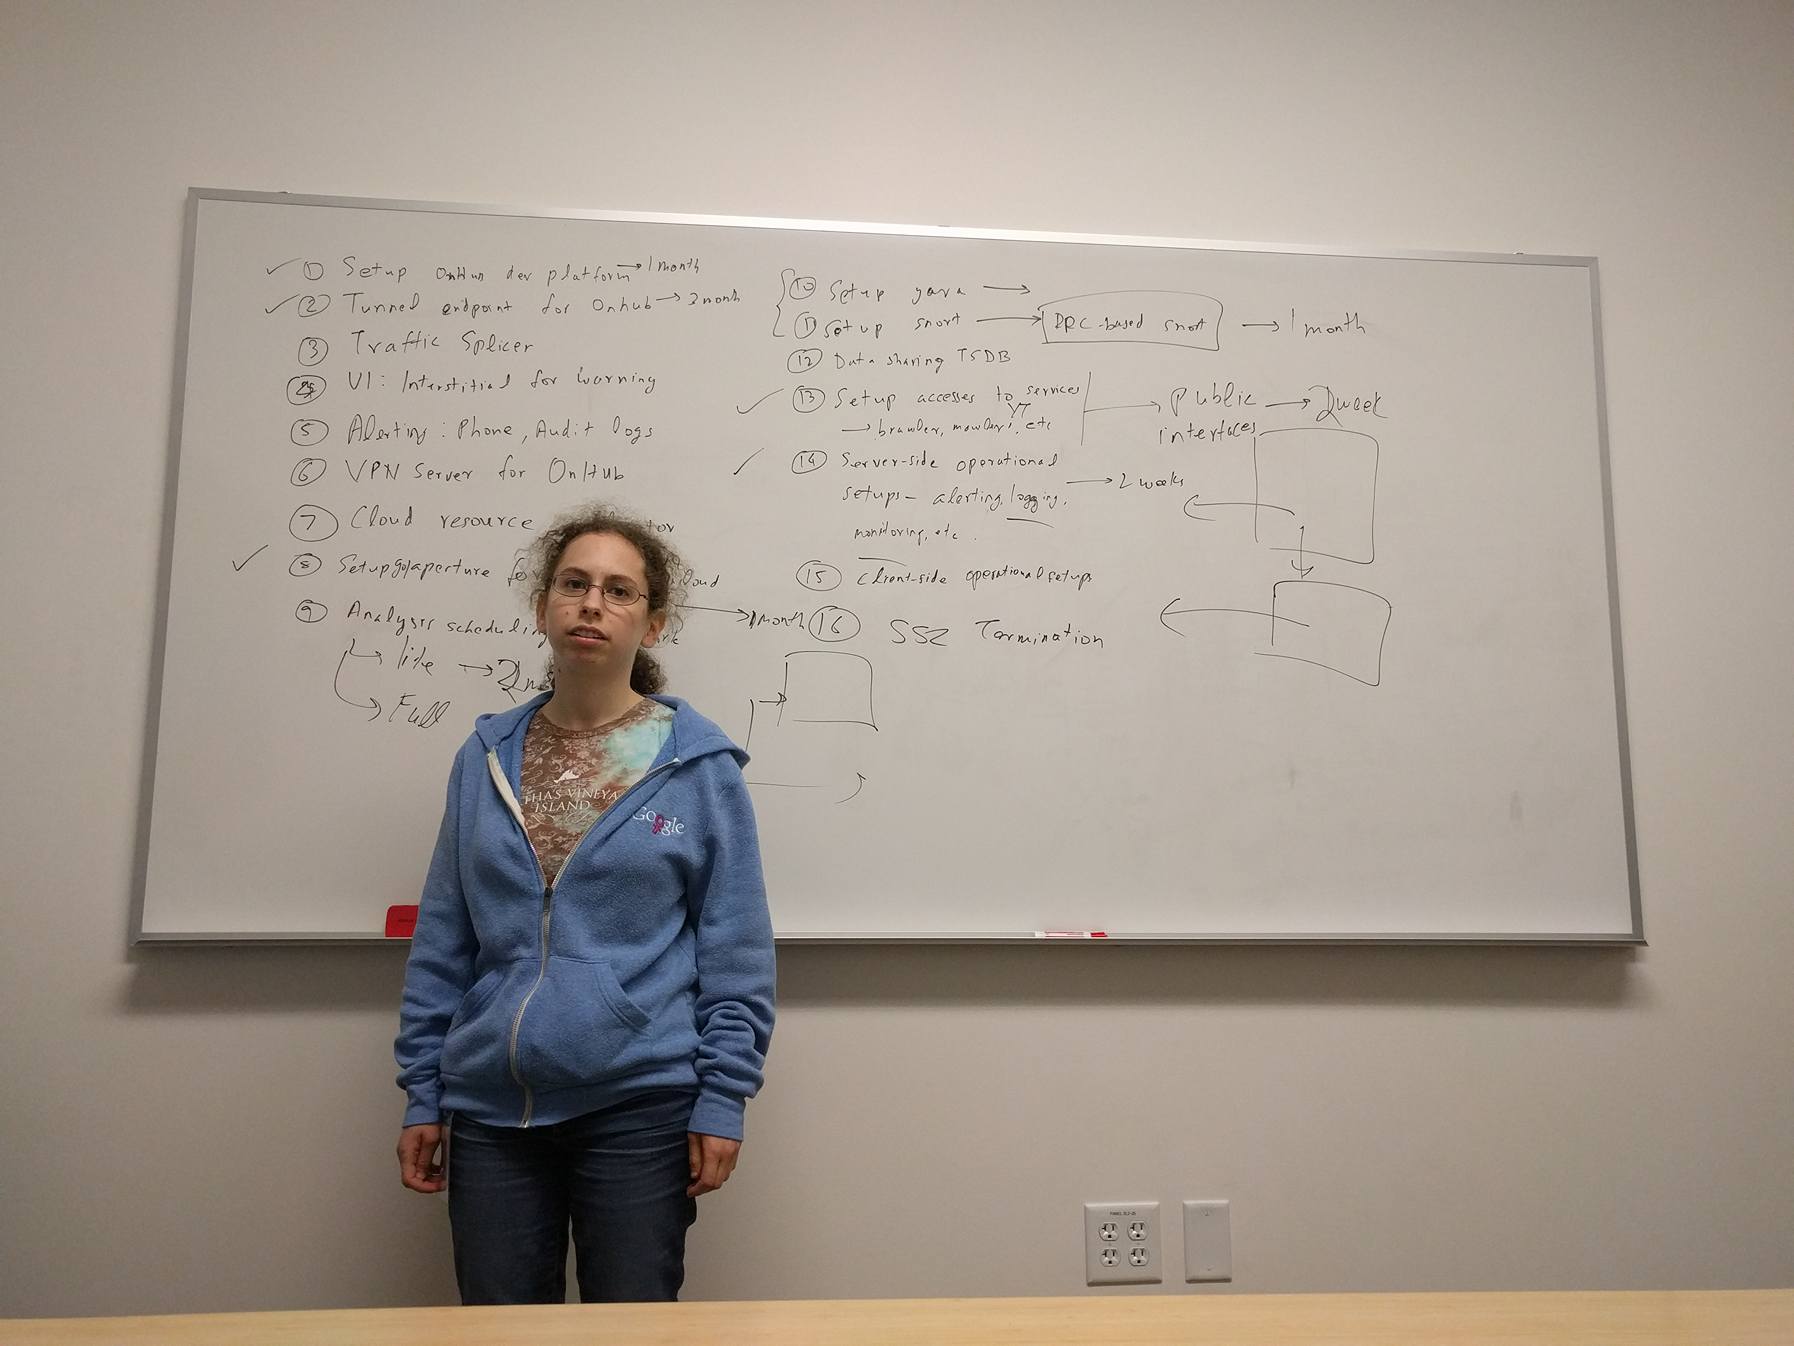 ① Setup OnHub dev platform → 1 month
② Tunnel endpoint for Onhub → 2 month
③ Traffic Splicer
④ UI: Interstitial for warning
⑤ Alerting: Phone, Audit logs
⑥ VPN Server for OnHub
⑦ Cloud resource
⑧ Setup go/aperture
⑨ Analysis scheduling → 1 month
→ lite → 2
→ Full
⑩ Setup yara →
⑪ Setup snort → RPC-based snort → 1 month
⑫ Data sharing TSDB
⑬ Setup accesses to services
→ etc
→ Public interfaces → 2 week
⑭ Server-side operational
setups - alerting, logging, → 2 weeks
monitoring, etc.
⑮ Client-side operational setups
⑯ Termination
THA'S VINEYA
ISLAND
Google